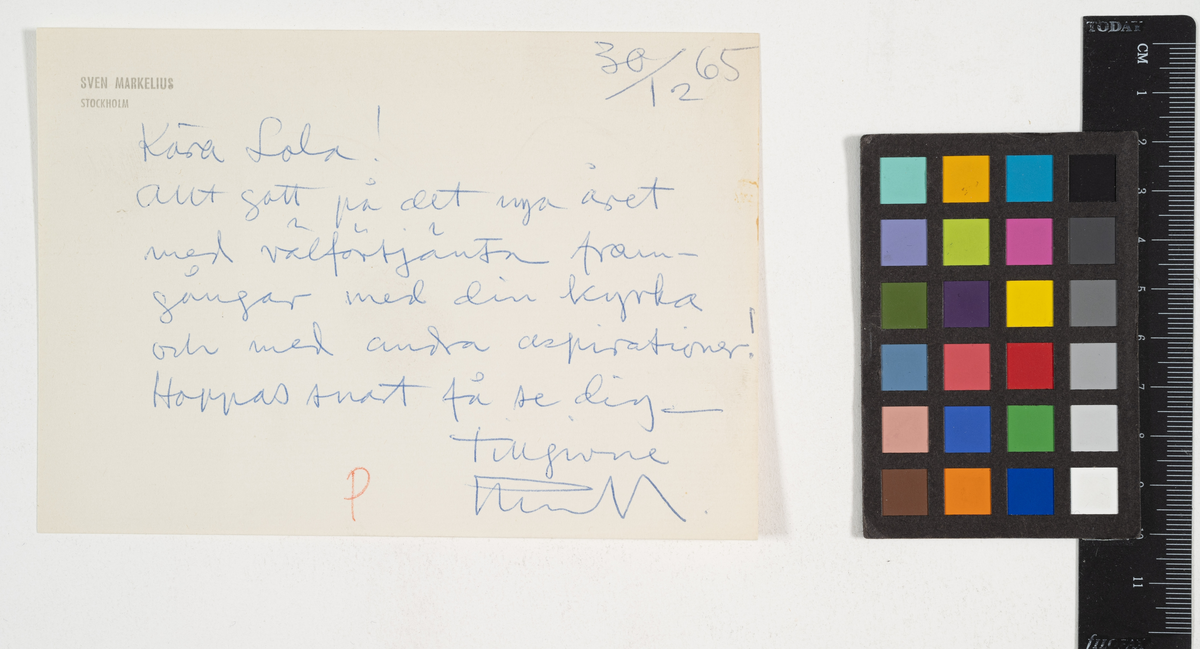 SVEN MARKELIUS
STOCKHOLM
30/12 65
Kära Lola!
allt gott på det nya året
med välförtjänta fram-
gångar med din kyrka
och med andra aspirationer!
Hoppas snart få se dig –
Tillgivne
P
TODAY
CM
1
2
3
4
5
6
7
8
9
11